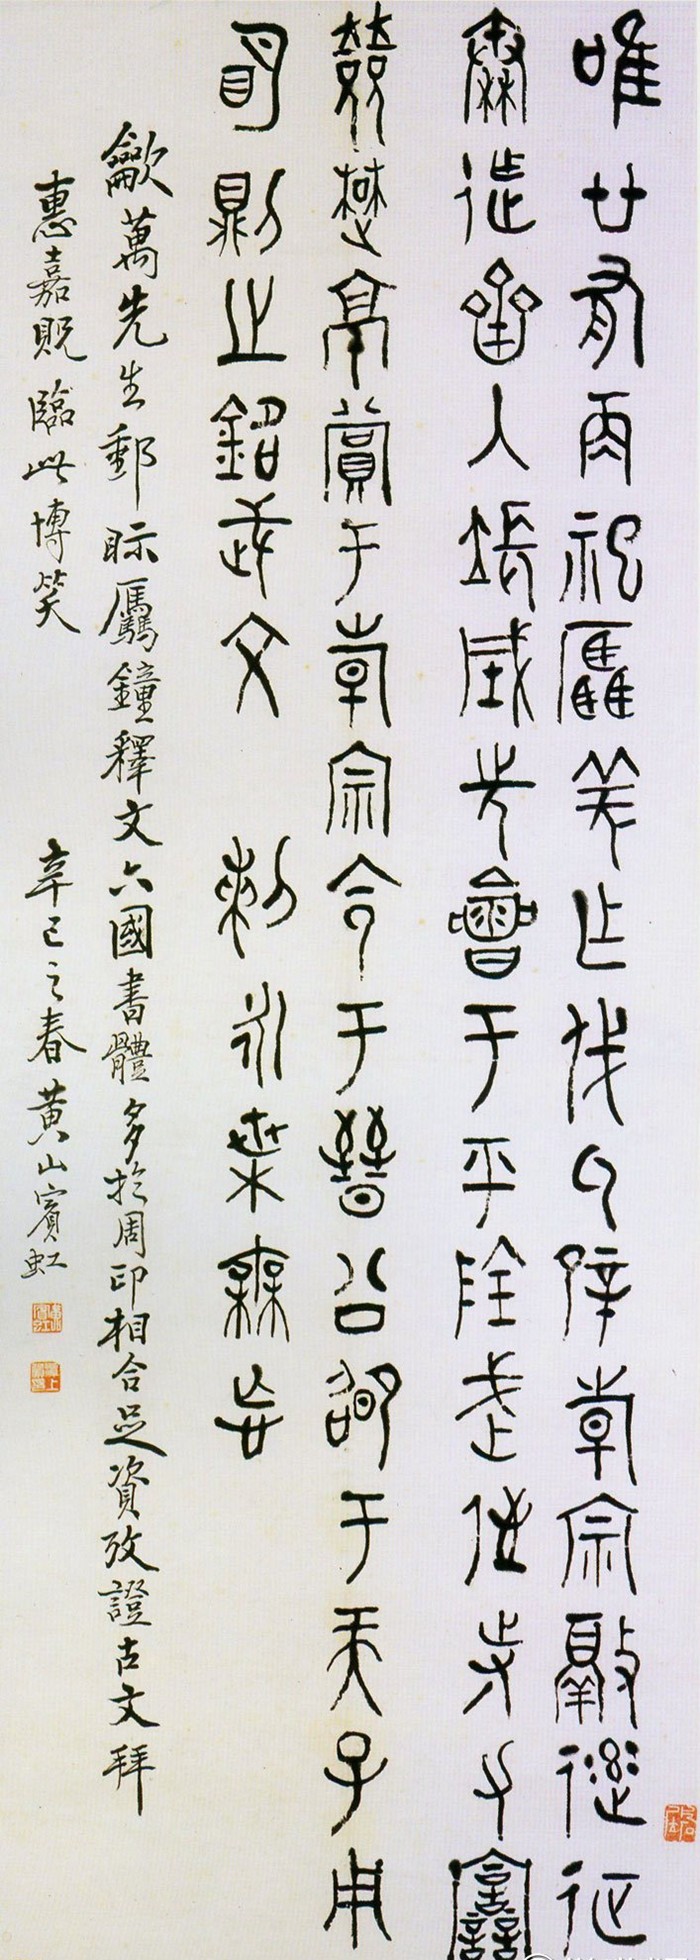 唯廿又再祀驫羌乍戎氒辟倝宗敲率征
秦迮齊入長城先會于平陰武侄寺力譶
敓楚京賞于倝宗令于晉公卲于天子用
明則之銘武文 剌永枼無忘
歙萬先生郵眎驫鐘釋文六國書體多於周印相合足資攷證古文拜
惠嘉貺臨此博笑 辛巳之春黃山賓虹